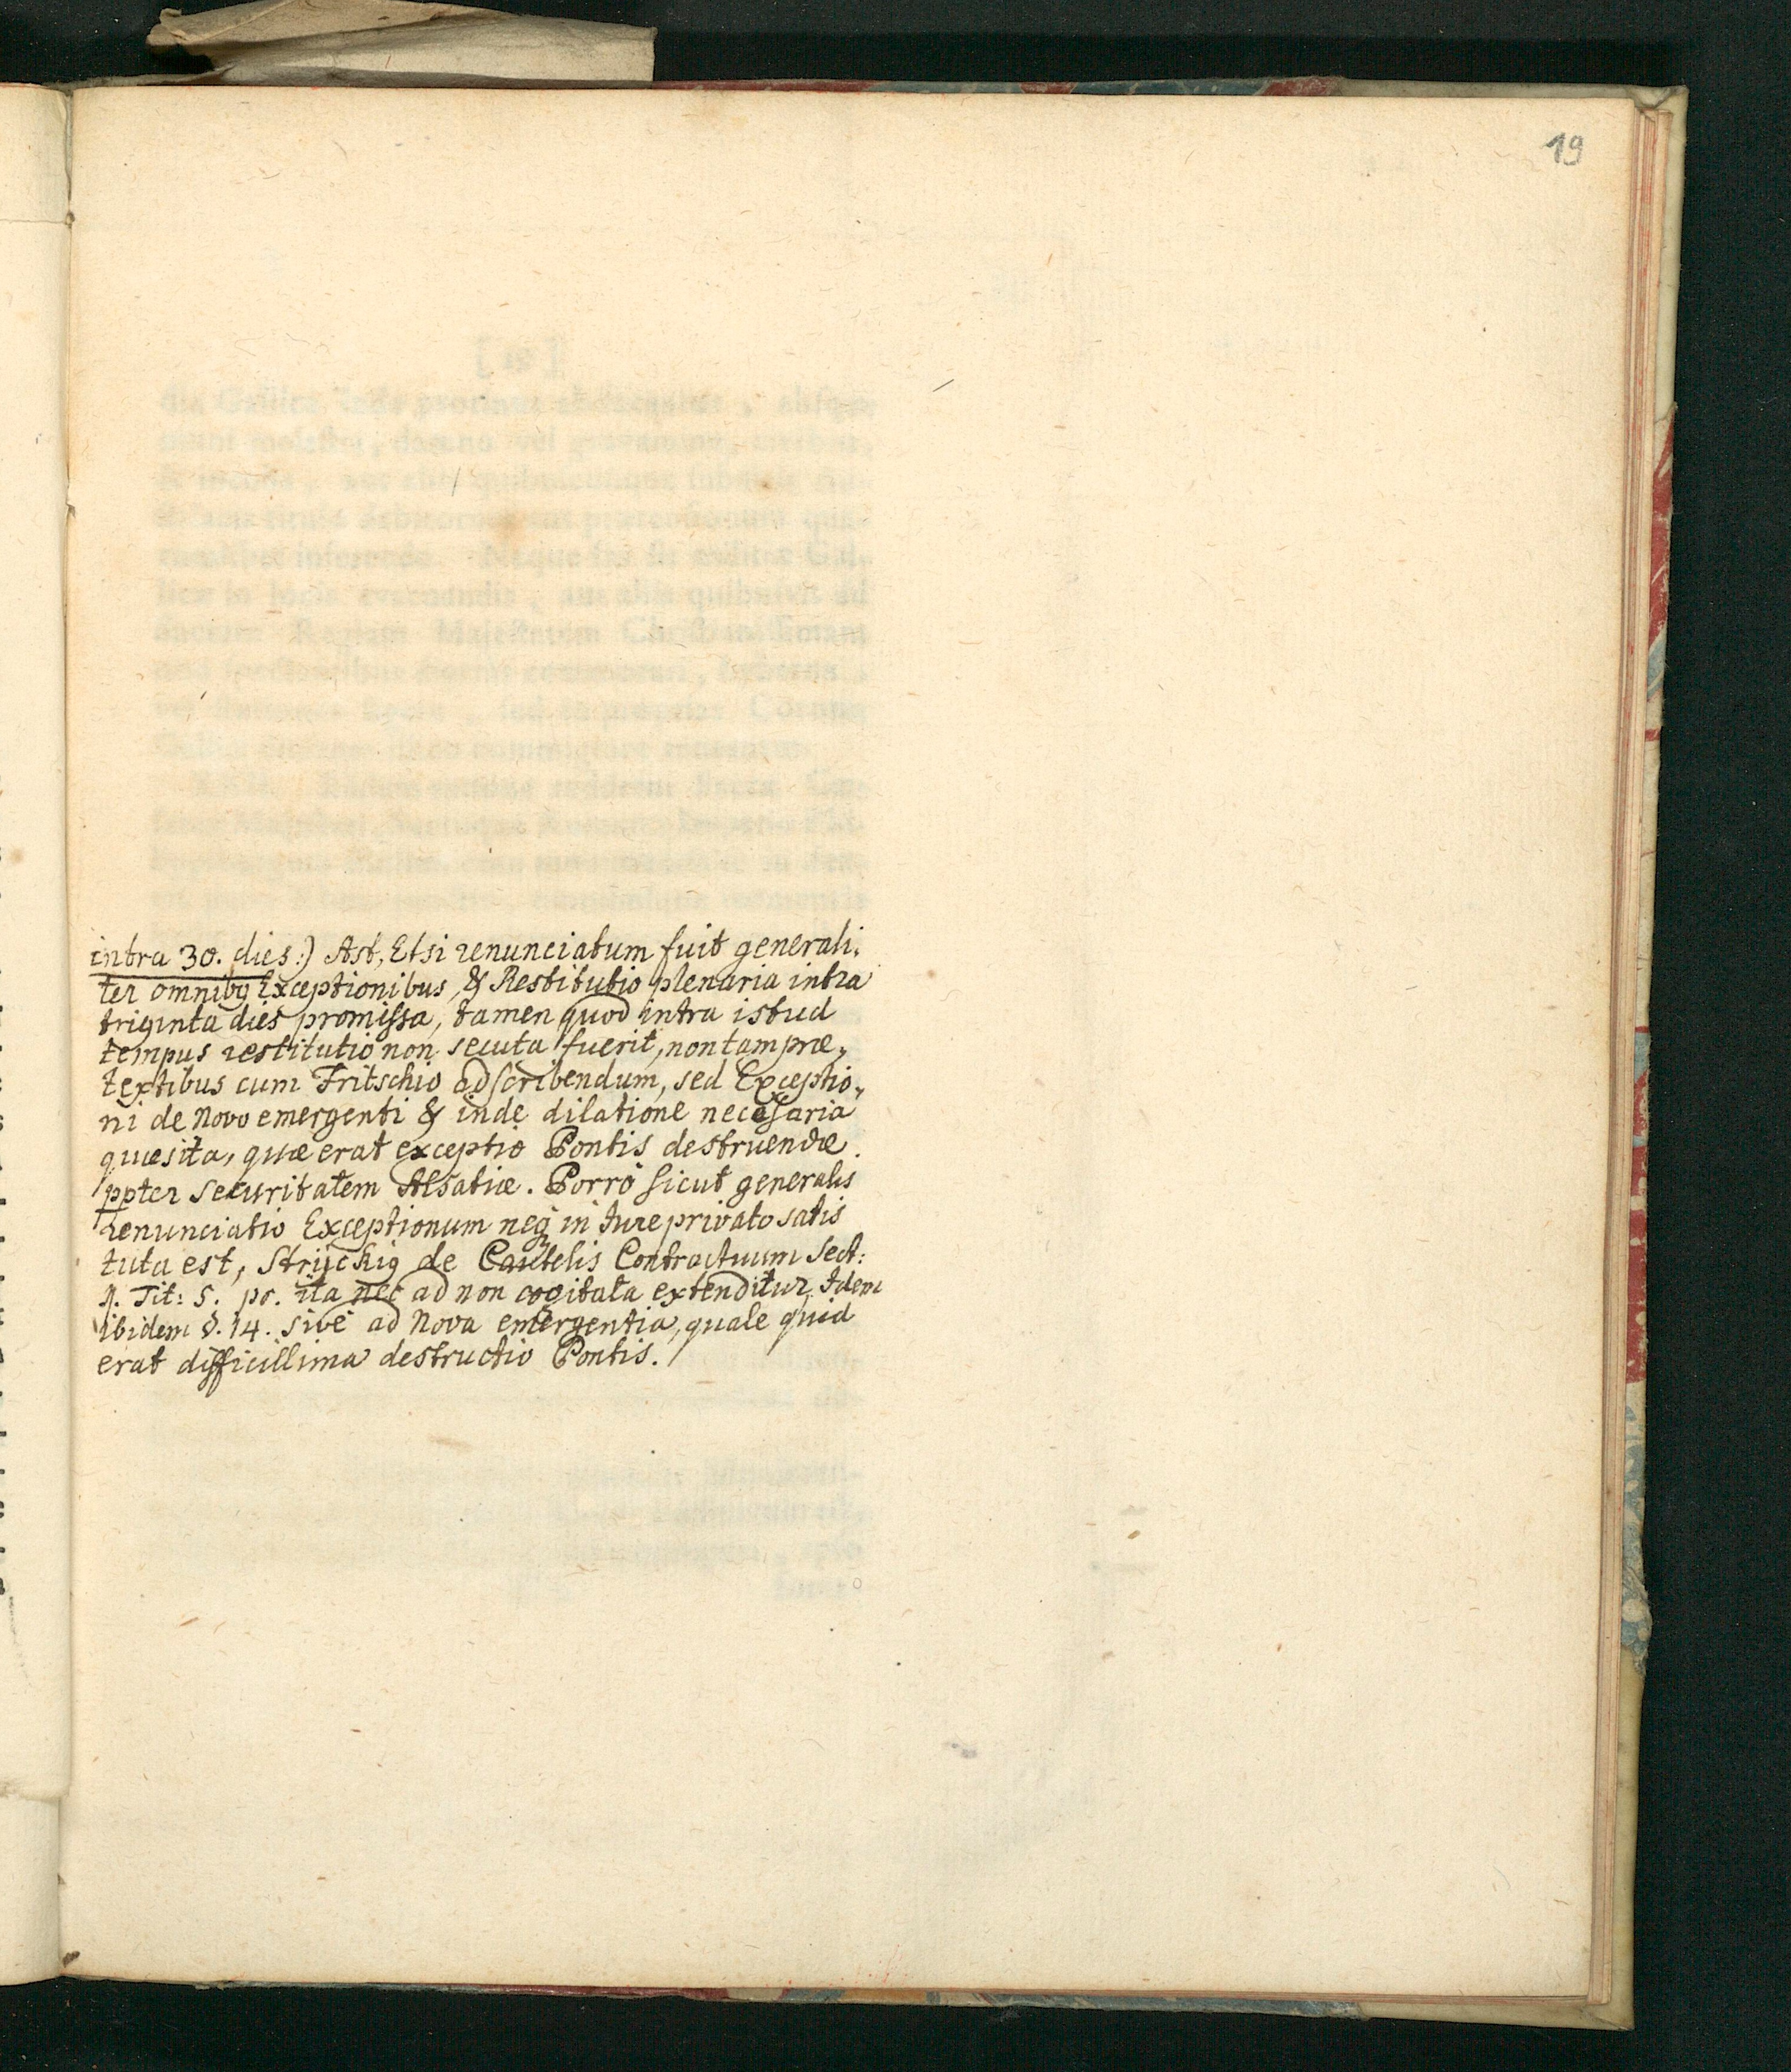 19
intra 30. dies:) Ast, Etsi renunciatum fuit generali-
ter omnibq Exceptionibus, & Restitutio plenaria intra
triginta dies promissa, tamen quod intra istud
tempus restitutio non secuta fuerit, non tam præ-
textibus cum Fritschio adscribendum, sed Exceptio-
ni de novo emergenti & inde dilatione necessaria
quæsita, quæ erat exceptio Pontis destruendæ
ppter securitatem Alsatiæ. Porrò sicut generalis
renunciatio Exceptionum neq in Iure privato satis
tuta est, Strijckiq de Cautelis Contractuum Sect:
Tit: 5. ita nec ad non cogitata extenditur, Idem
ibidem §. 14. sive ad Nova emergentia, quale quid
erat difficillima destructio Pontis.